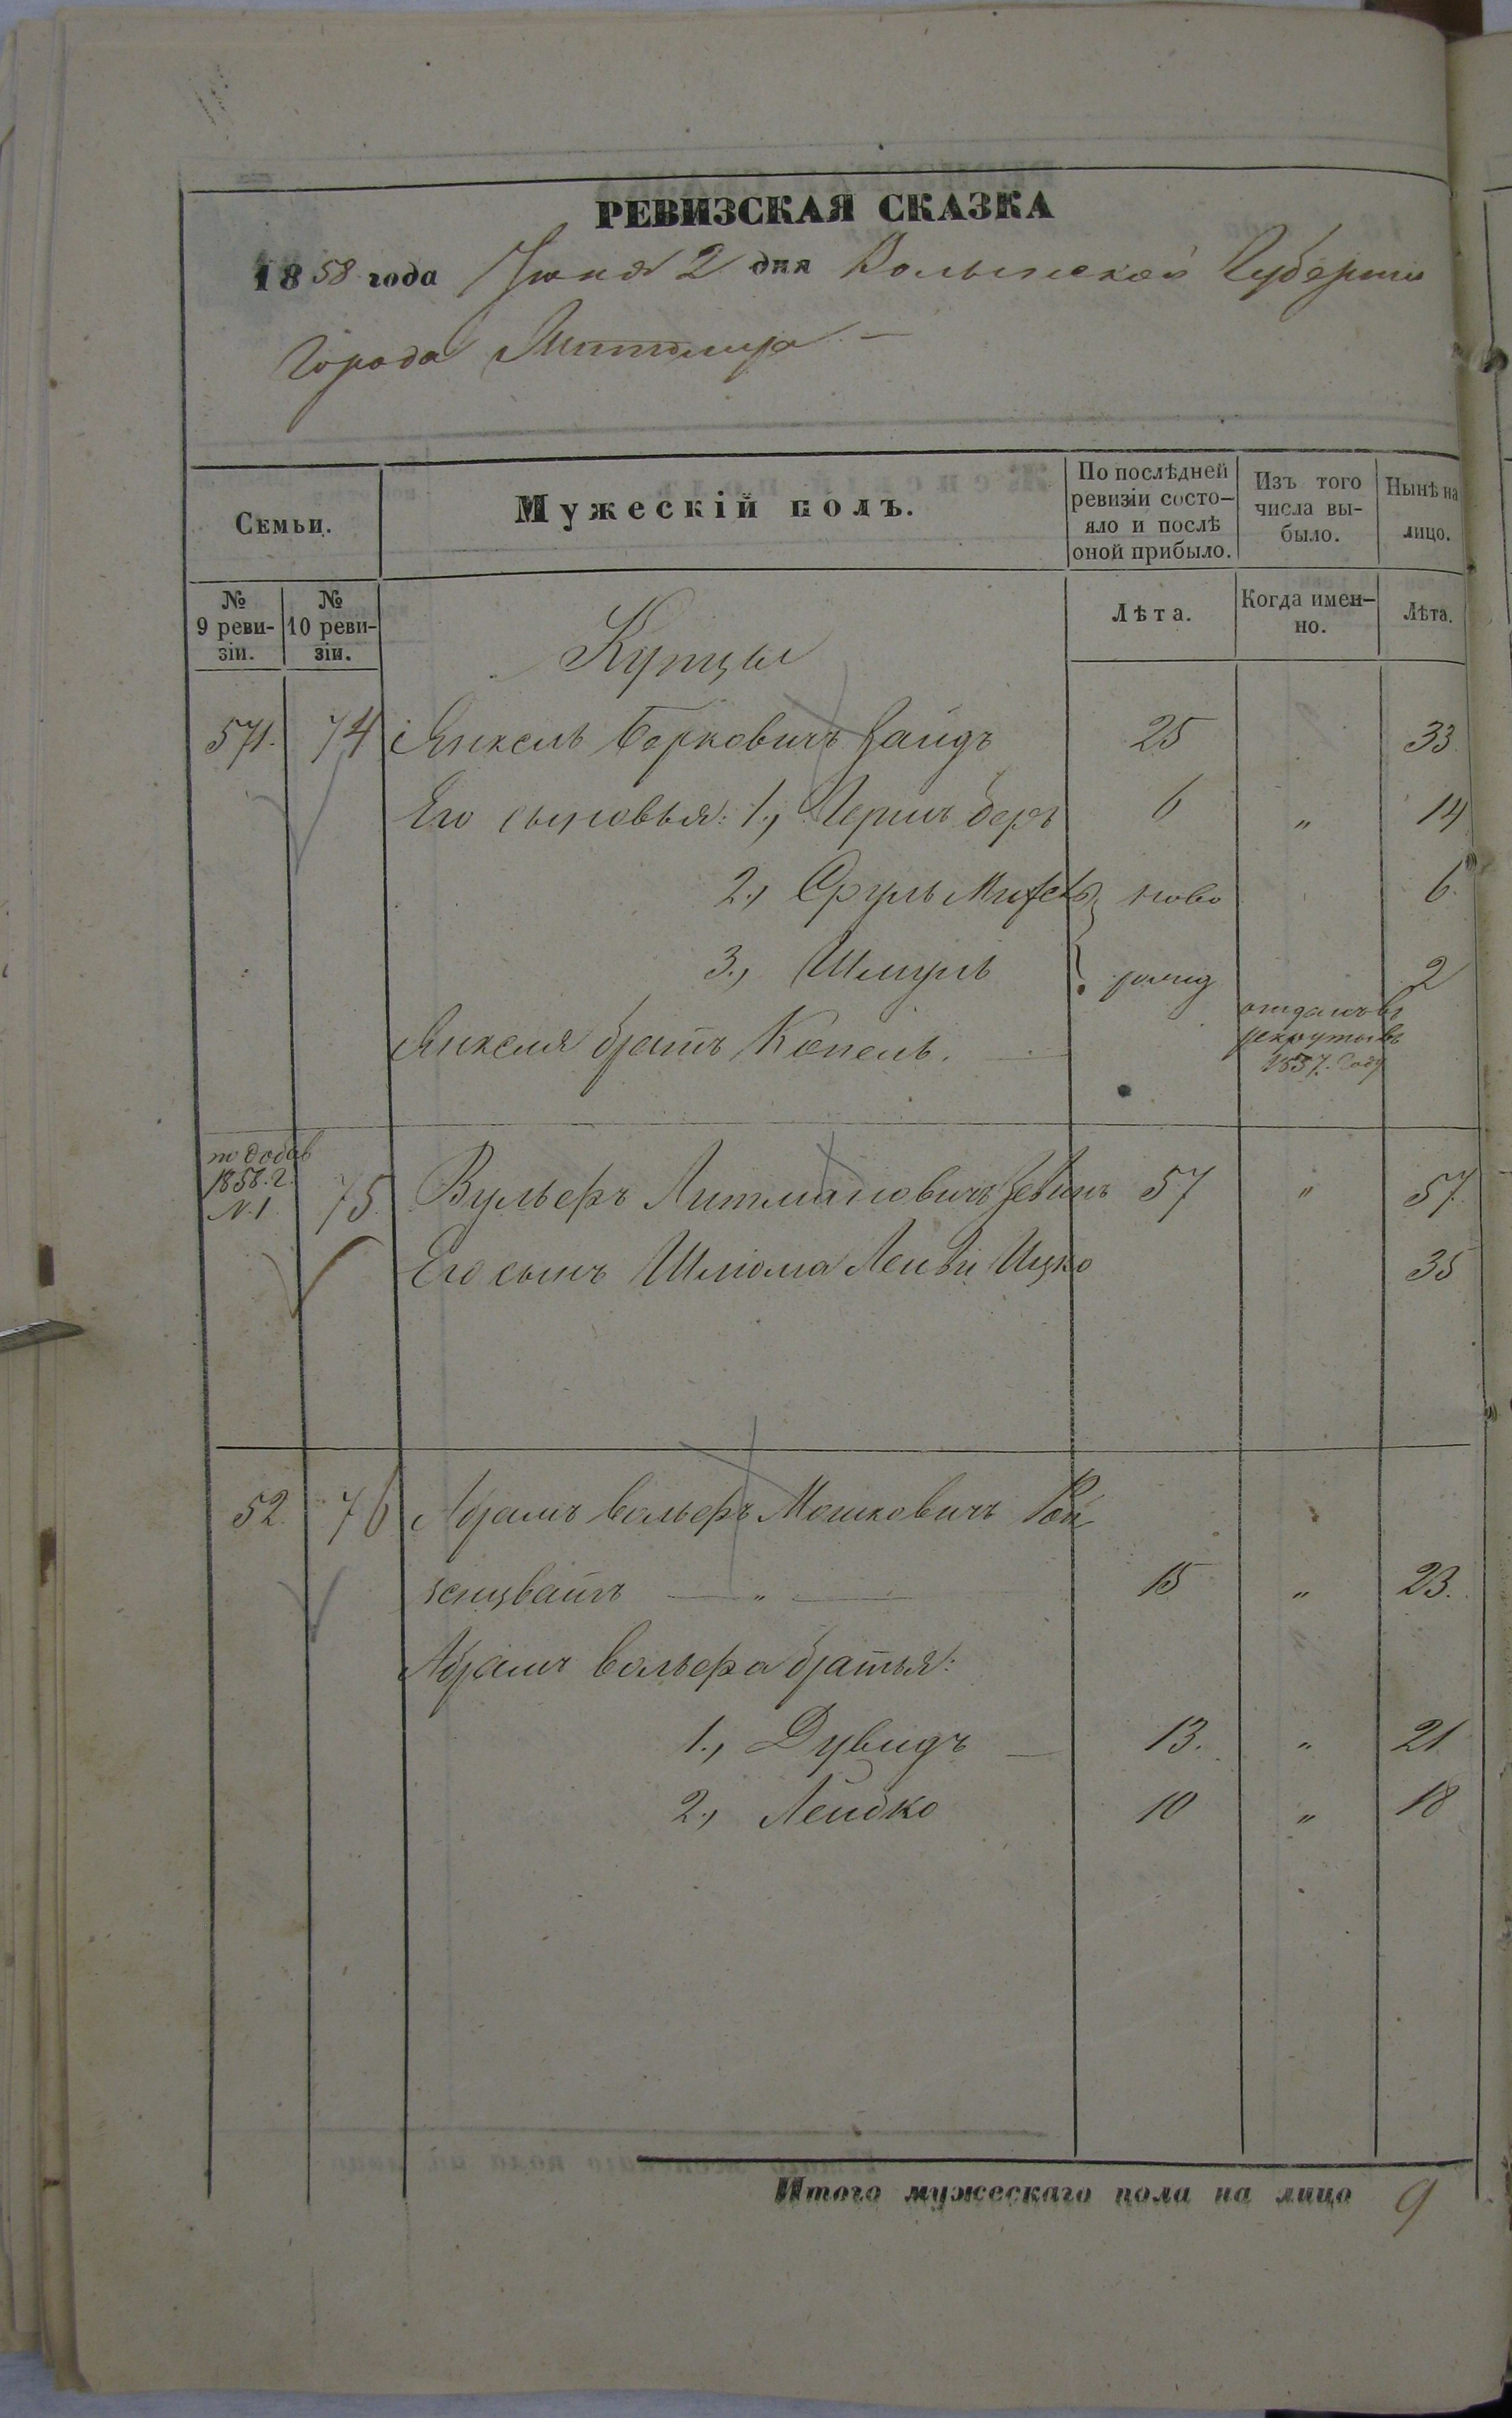 РЕВИЗСКАЯ СКАЗКА
1858 года Іюня 2 дня Волынской Губерніи
Города Житомира
Семьи.
Мужескій полъ.
По послѣдней ревизіи состо-яло и послѣ оной прибыло.
Изъ того числа вы-было.
Нынѣ на лицо.
№ 9 реви-зіи.
№ 10 реви-зіи.
Лѣта.
Когда имен-но.
Лѣта.
Купцы
571. 74 Янкель Берковичъ Зайдъ 25 33
Его сыновья: 1., Гершъ Беръ 6 „ 14
2., Сруль ново 6
3., Шмуль рожд 2
Янкеля братъ Копель. отданъ въ рекруты въ 1857. году
по добав 1858. г. N. 1 75 Вульфъ Литмановичъ 57 „ 57
Его сынъ Шлiома Лейбъ Ицко 35
52. 76 Абрамъ Вольфъ Мошковичъ Рой
зенцвайгъ — „ — 15 „ 23.
Абрамъ Вольфа братья:
1., Дувидъ — 13. „ 21
2., Лейбко 10 „ 18
Итого мужескаго пола на лицо 9